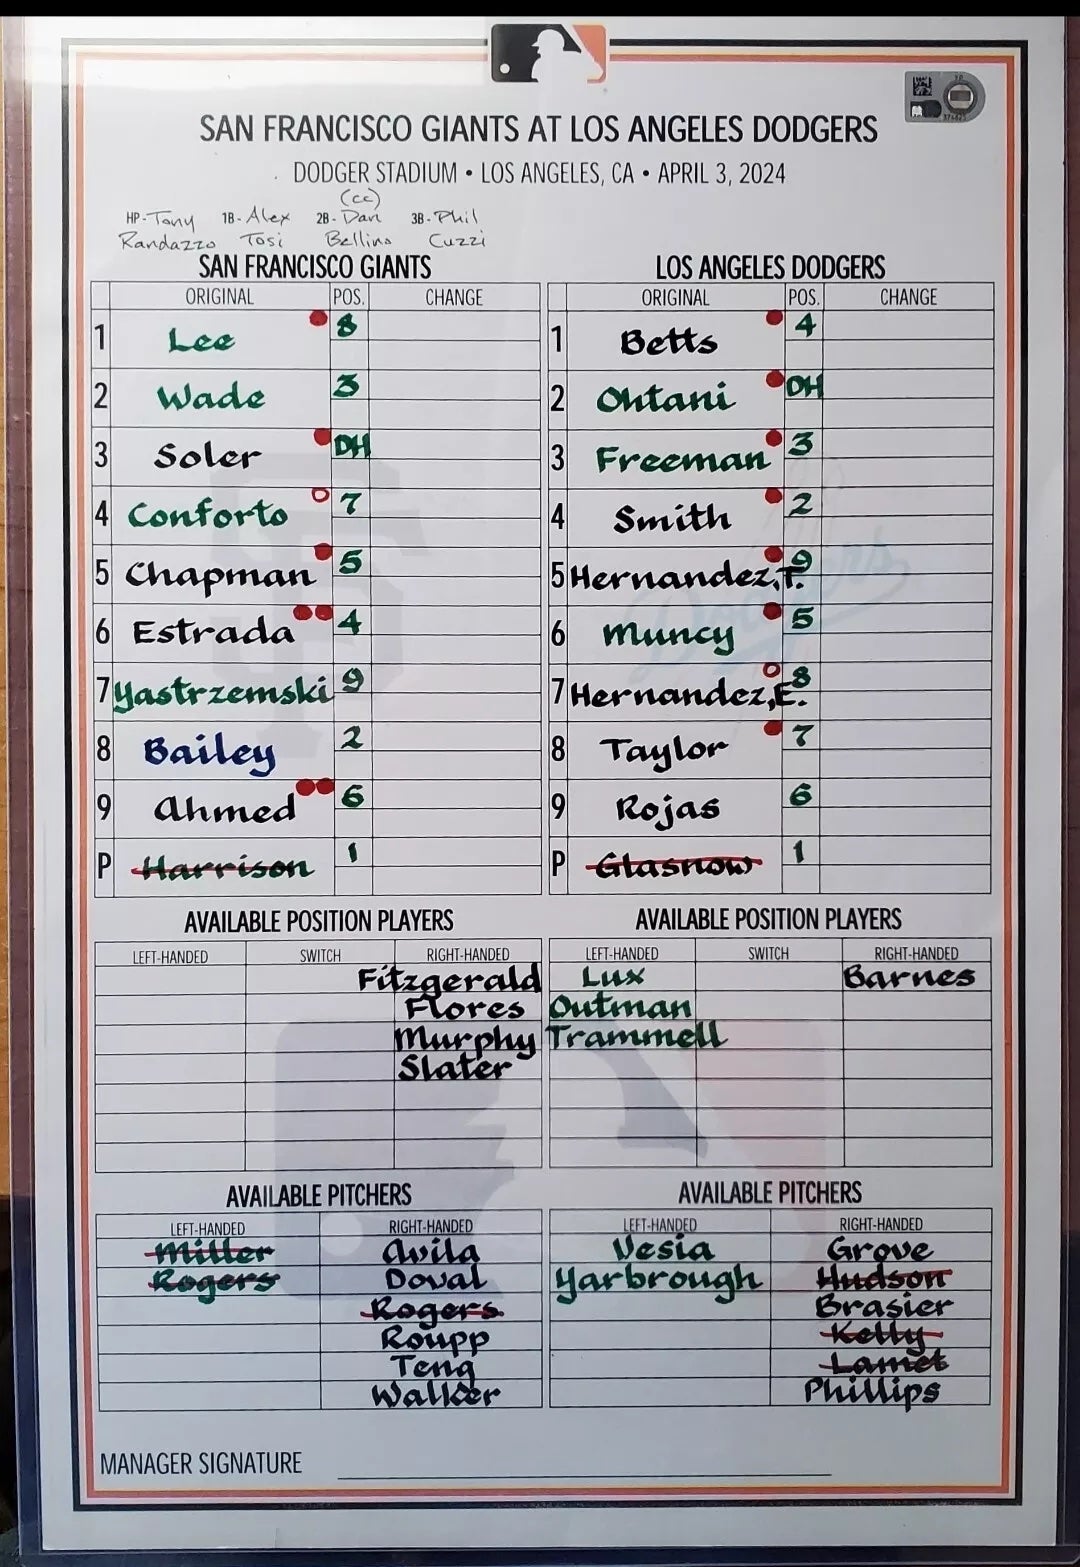 SAN FRANCISCO GIANTS AT LOS ANGELES DODGERS
DODGER STADIUM • LOS ANGELES, CA • APRIL 3, 2024
(cc)
HP-Tony 1B-Alex 2B-Dan 3B-Phil
Randazzo Tosi Bellino Cuzzi
SAN FRANCISCO GIANTS
ORIGINAL POS. CHANGE
1 Lee 8
2 Wade 3
3 Soler DH
4 Conforto 7
5 Chapman 5
6 Estrada 4
7 Yastrzemski 9
8 Bailey 2
9 Ahmed 6
P Harrison 1
LOS ANGELES DODGERS
ORIGINAL POS. CHANGE
1 Betts 4
2 Ohtani DH
3 Freeman 3
4 Smith 2
5 Hernandez,T. 9
6 Muncy 5
7 Hernandez,E. 8
8 Taylor 7
9 Rojas 6
P Glasnow 1
AVAILABLE POSITION PLAYERS
LEFT-HANDED SWITCH RIGHT-HANDED
Fitzgerald
Flores
Murphy
Slater
AVAILABLE POSITION PLAYERS
LEFT-HANDED SWITCH RIGHT-HANDED
Lux Barnes
Outman
Trammell
AVAILABLE PITCHERS
LEFT-HANDED RIGHT-HANDED
Miller Avila
Rogers Doval
Rogers
Roupp
Teng
Walker
AVAILABLE PITCHERS
LEFT-HANDED RIGHT-HANDED
Vesia Grove
Yarbrough Hudson
Brasier
Kelly
Lamet
Phillips
MANAGER SIGNATURE